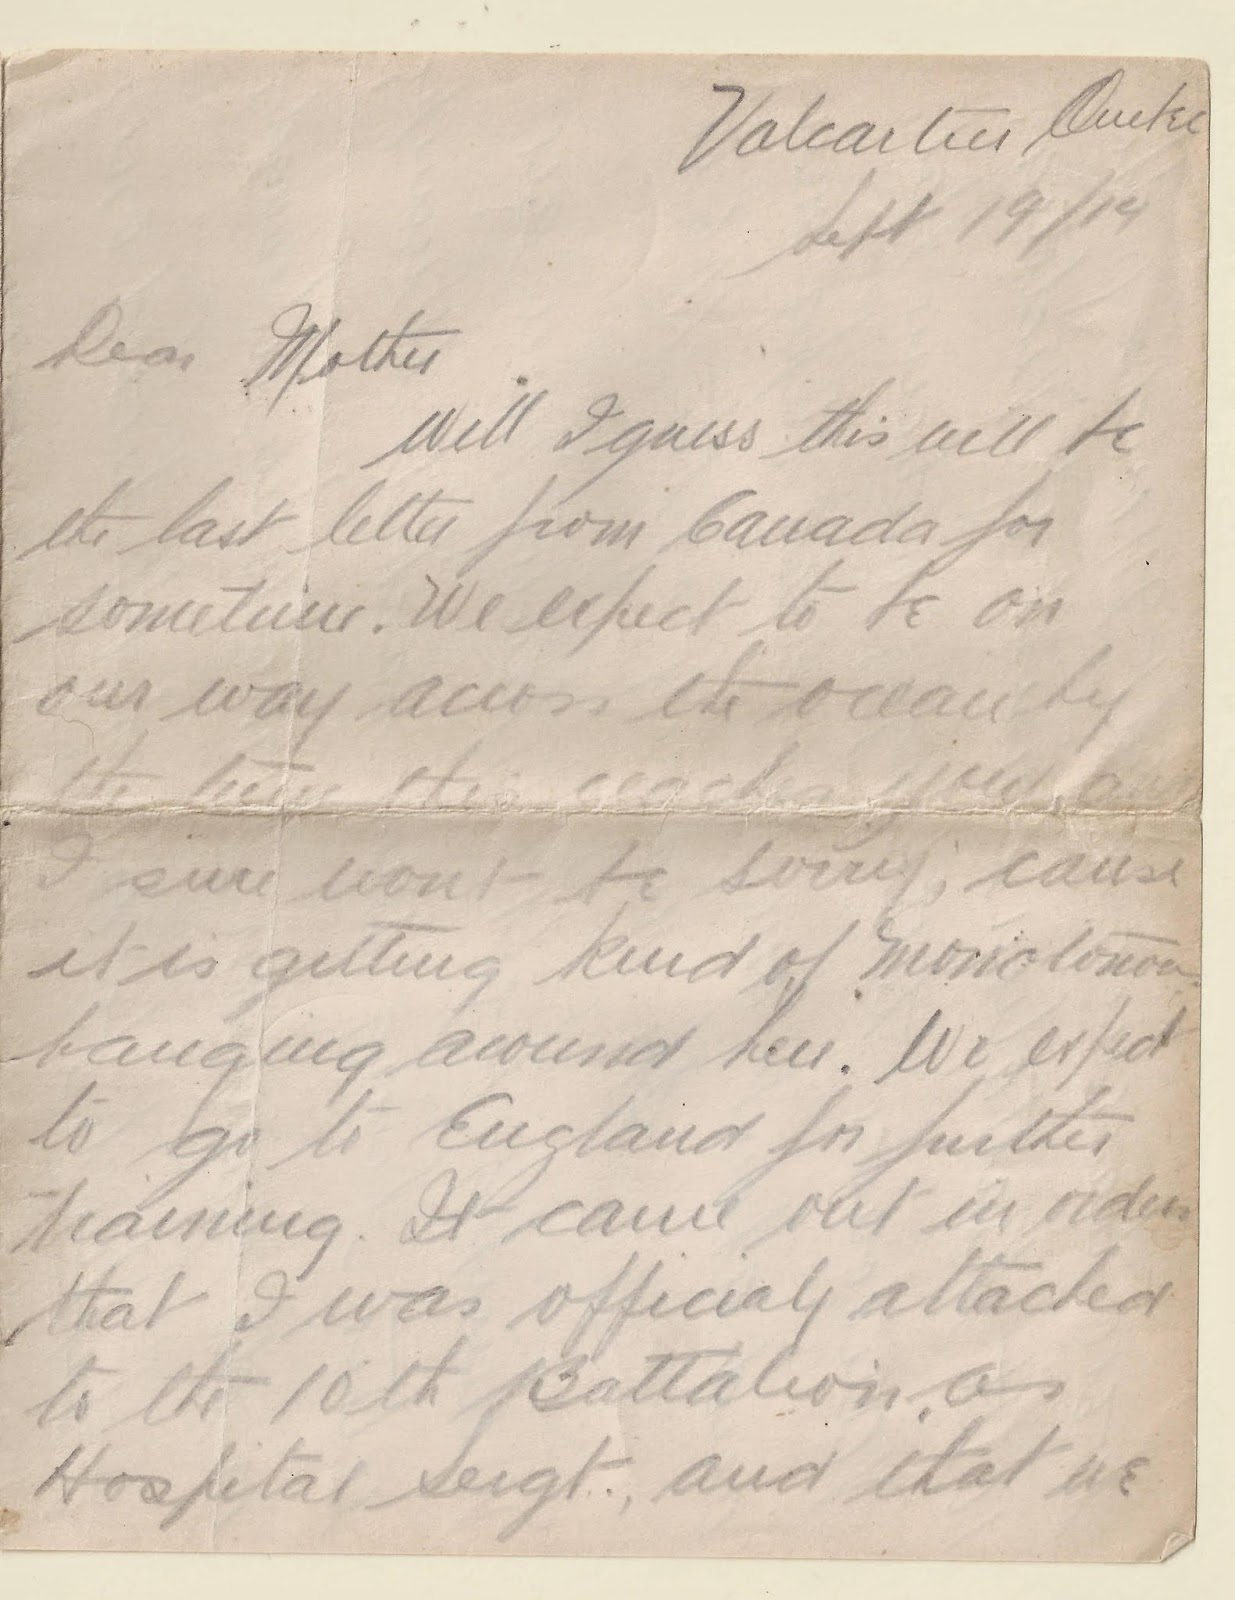 Valcartier Quebec
Sept 19/14
Dear Mother
Well I guess this will be
the last letter from Canada for
sometime. We expect to be on
our way across the ocean by
the time this reaches you, and
I sure wont be sorry, cause
it is getting kind of monotonous
hanging around here. We expect
to go to England for further
training. It came out in orders
that I was officialy attached
to the 10th Battalion, as
Hospital Sergt., and that we